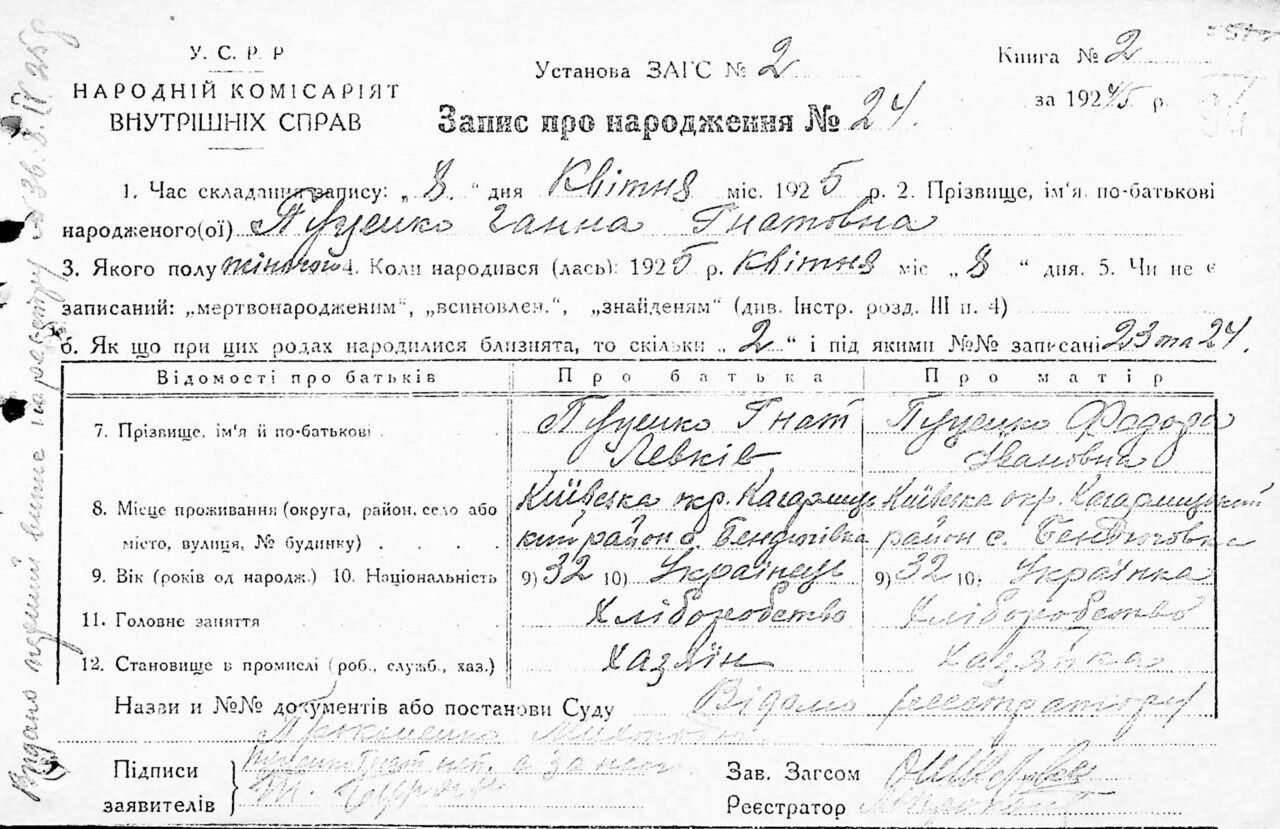 У. С. Р. Р
НАРОДНІЙ КОМІСАРІЯТ
ВНУТРІШНІХ СПРАВ
Установа ЗАГС № 2
Книга № 2
за 1924/5 р.
Запис про народження № 24.
1. Час складання запису: „ 8. “ дня Квітня міс. 1925 р. 2. Прізвище, ім'я по-батькові
народженого(ої) Пуценко Ганна Гнатовна
3. Якого полу жіночого 4. Коли народився (лась): 1925 р. Квітня міс „ 8 “ дня. 5. Чи не є
записаний: „мертвонародженим“, „всиновлен.“, „знайденям“ (див. Інстр. розд. III п. 4)
6. Як що при цих родах народилися близнята, то скільки „ 2 “ і під якими №№ записані 23 та 24.
Відомості про батьків Про батька Про матір
7. Прізвище, ім'я й по-батькові Пуценко Гнат Пуценко Федора
Левків Івановна
8. Місце проживання (округа, район, село або Київська окр. Кагарлиць Київська окр. Кагарлицький
місто, вулиця, № будинку) кий район с. Бендюгівка район с. Бендюговка
9. Вік (років од народж.) 10. Національність 9) 32 10) Українець 9) 32 10) Українка
11. Головне заняття Хліборобство Хліборобство
12. Становище в промислі (роб., служб., хаз.) Хазяїн Хазяйка
Назви и №№ документів або постанови Суду Відомо реєстратору
Підписи
заявителів
Зав. Загсом
Реєстратор